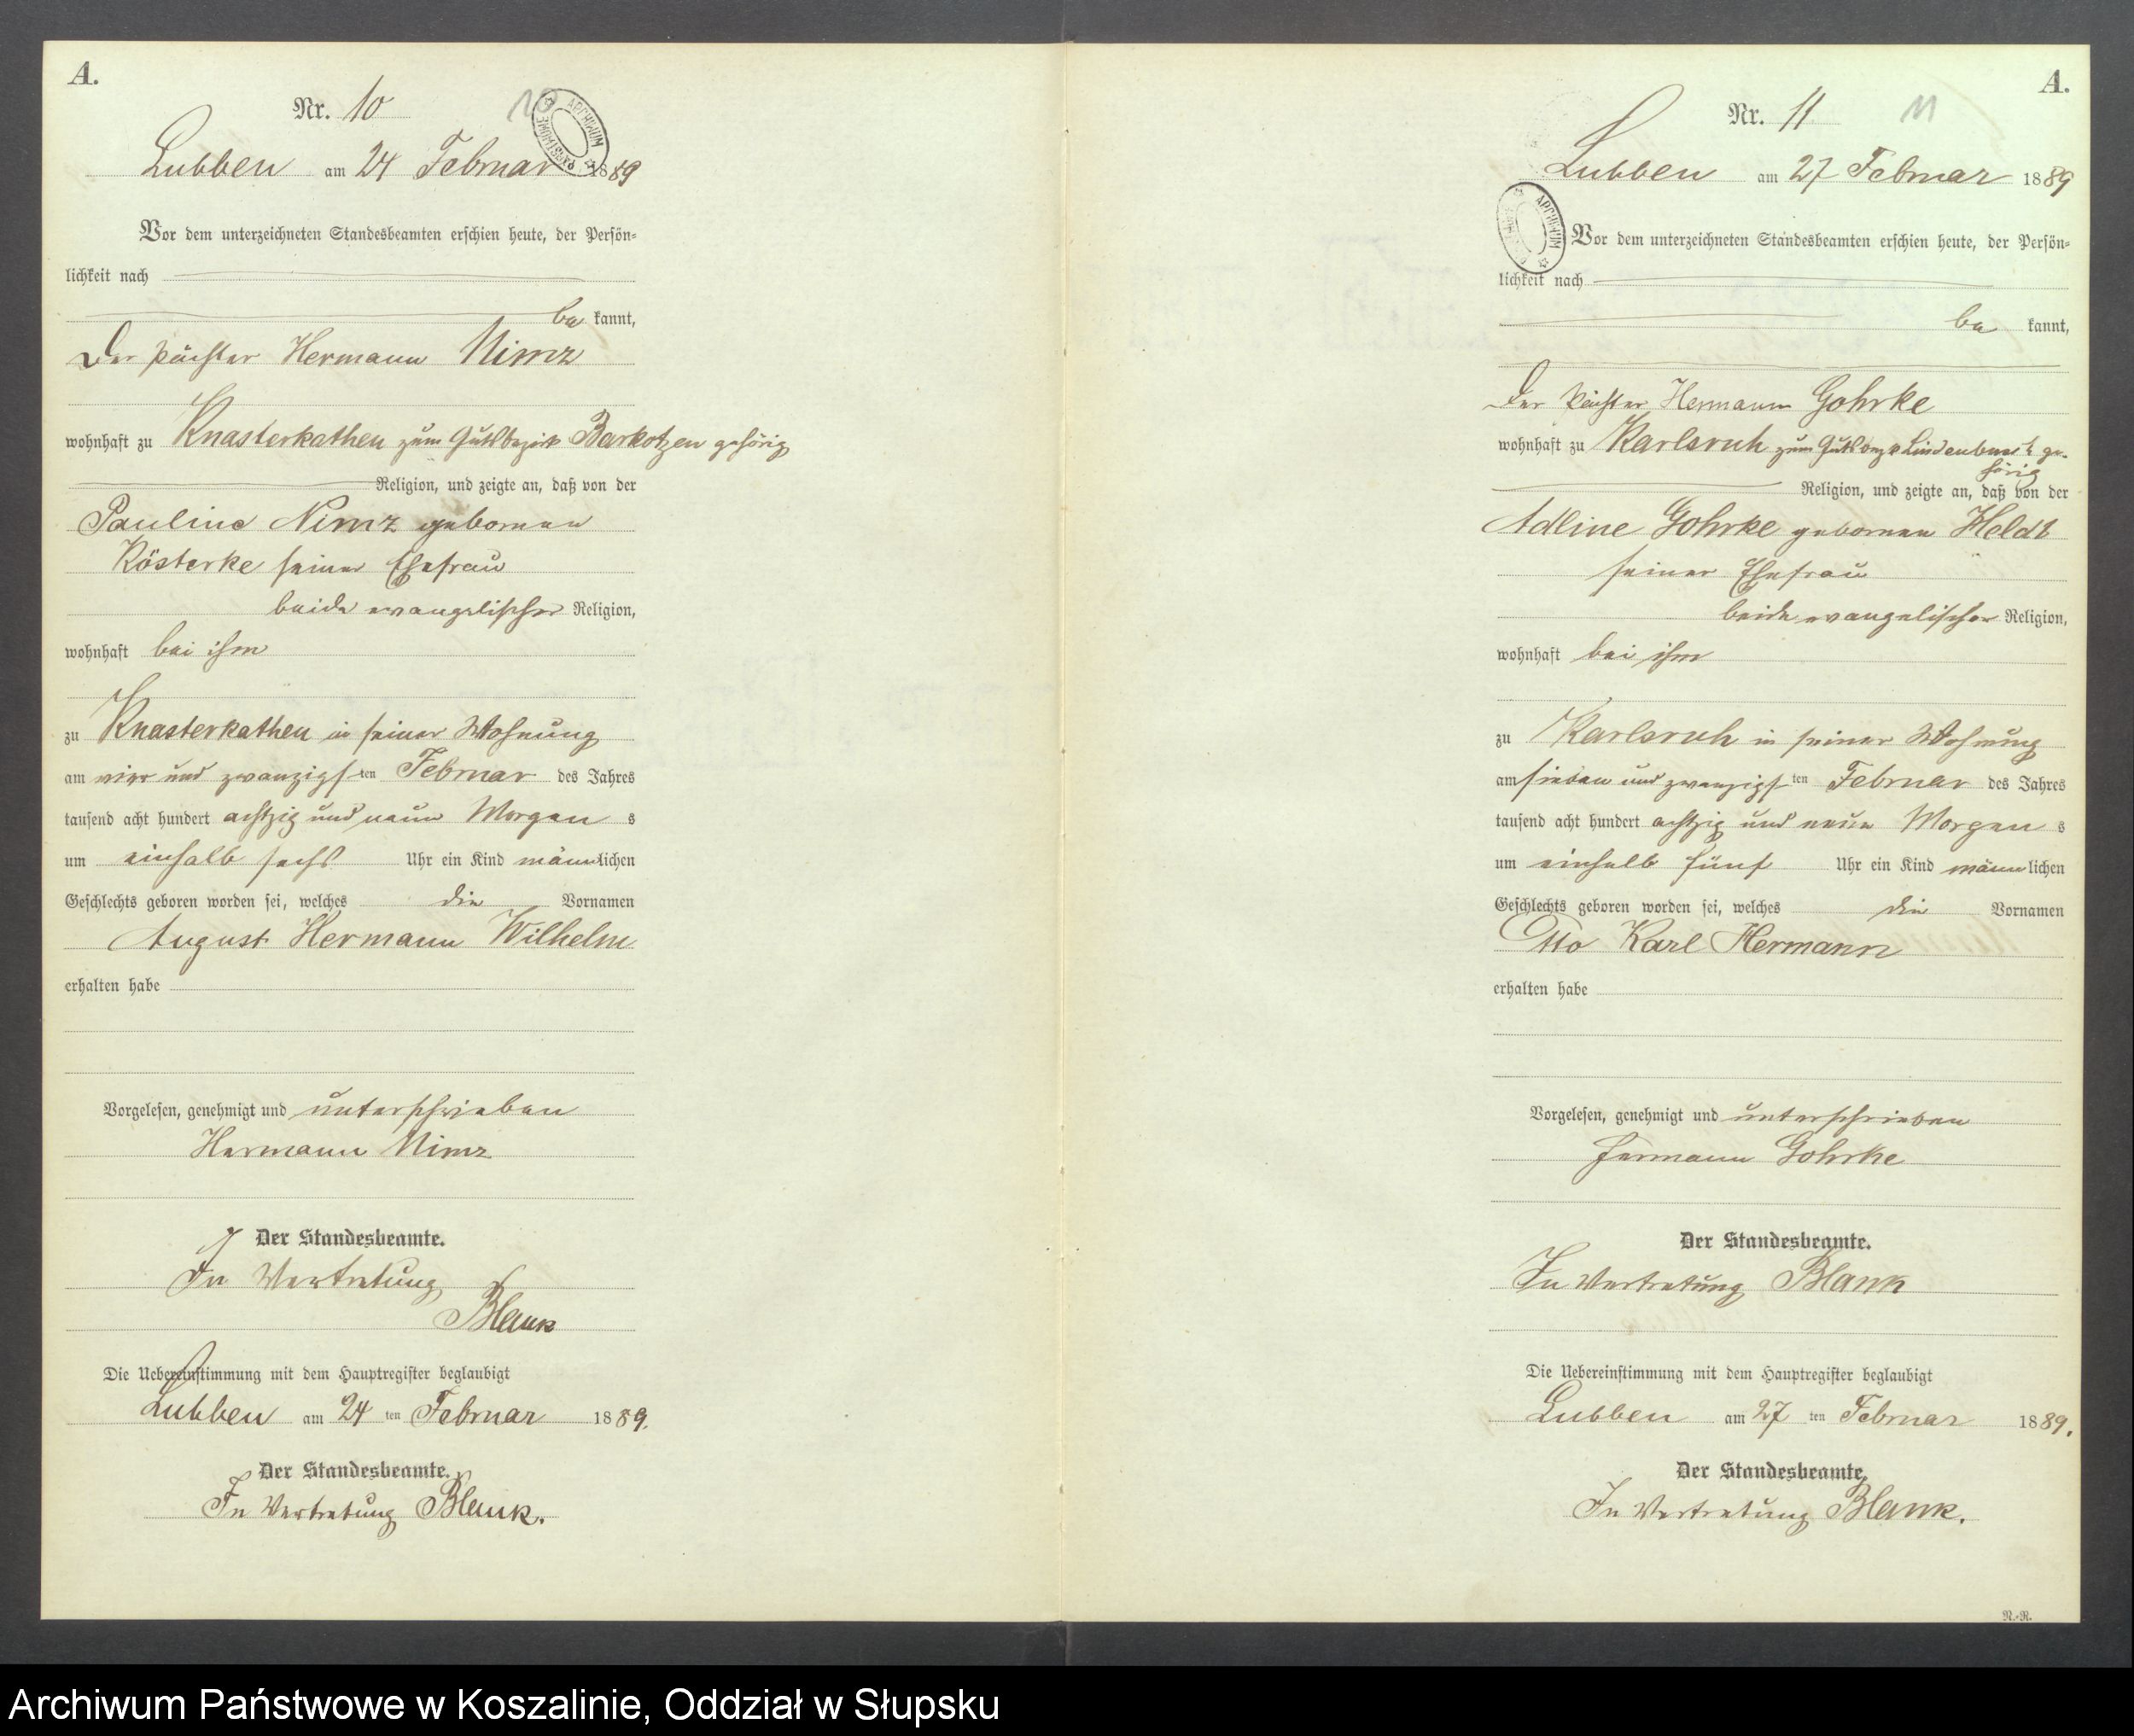 A.
Nr. 10
10
ARCHIWUM PAŃSTWOWE
Lubben am 24 Februar 1889
Vor dem unterzeichneten Standesbeamten erschien heute, der Persön-
lichkeit nach
be kannt,
Der Pächter Hermann Nimz
wohnhaft zu Knasterkathen zum Gutsbezirk Barkotzen gehörig
Religion, und zeigte an, daß von der
Pauline Nimz geborenen
Kösterke seiner Ehefrau
beide evangelischer Religion,
wohnhaft bei ihm
zu Knasterkathen in seiner Wohnung
am vier und zwanzigsten Februar des Jahres
tausend acht hundert achtzig und neun Morgens
um einhalb sechs Uhr ein Kind männlichen
Geschlechts geboren worden sei, welches die Vornamen
August Hermann Wilhelm
erhalten habe
Vorgelesen, genehmigt und unterschrieben
Hermann Nimz
Der Standesbeamte.
In Vertretung
Blank
Die Uebereinstimmung mit dem Hauptregister beglaubigt
Lubben am 24 ten Februar 1889.
Der Standesbeamte.
In Vertretung Blank.
A.
Nr. 11
11
Lubben am 27 Februar 1889
ARCHIWUM
Vor dem unterzeichneten Standesbeamten erschien heute, der Persön-
lichkeit nach
be kannt,
Der Pächter Hermann Gohrke
wohnhaft zu Karlsruh zum Gutsbezk Lindenbusch ge-
hörig
Religion, und zeigte an, daß von der
Adline Gohrke geborenen Heldt
seiner Ehefrau
beide evangelischer Religion,
wohnhaft bei ihm
zu Karlsruh in seiner Wohnung
am sieben und zwanzigsten Februar des Jahres
tausend acht hundert achtzig und neun Morgens
um einhalb fünf Uhr ein Kind männlichen
Geschlechts geboren worden sei, welches die Vornamen
Otto Karl Hermann
erhalten habe
Vorgelesen, genehmigt und unterschrieben
Hermann Gohrke
Der Standesbeamte.
In Vertretung Blank
Die Uebereinstimmung mit dem Hauptregister beglaubigt
Lubben am 27 ten Februar 1889.
Der Standesbeamte.
In Vertretung Blank.
N.-R.
Archiwum Państwowe w Koszalinie, Oddział w Słupsku